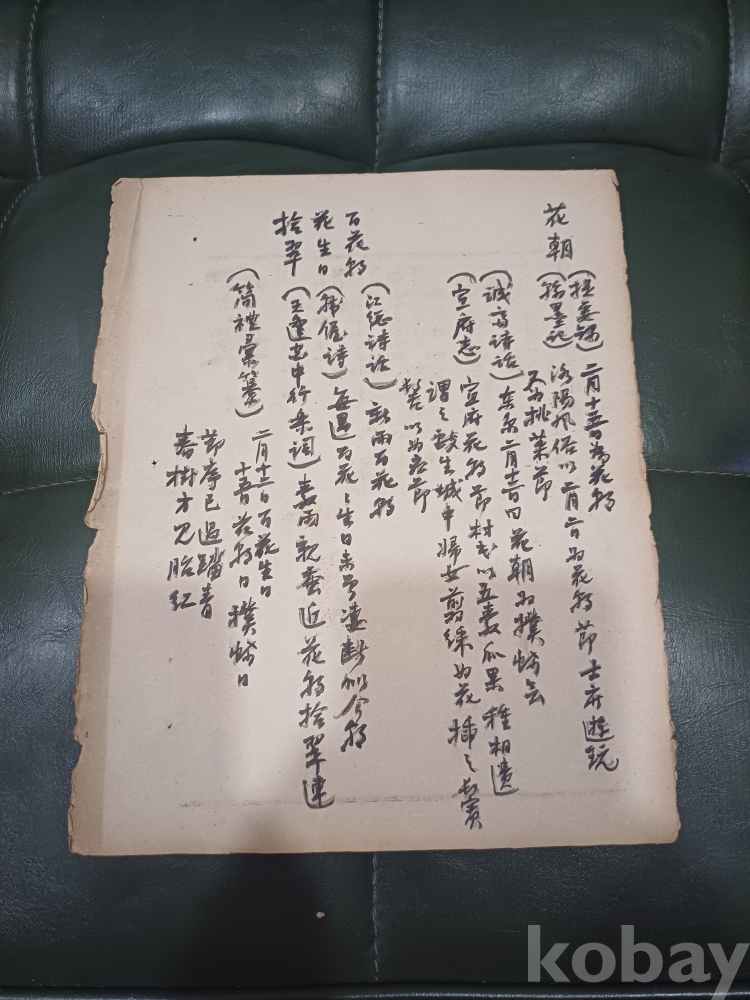 花朝
(提要錄)二月十五日為花朝
(翰墨記)洛陽風俗以二月二日為花朝節士庶遊玩
又為挑菜節
(誠齋詩話)東京二月十二日曰花朝為撲蝶會
(宣府志)宣府花朝節村民以五穀瓜果種相遺
謂之獻生城中婦女剪綵為花插之
鬢以為節
百花朝
(江總詩話)新雨百花朝
花生日
詩)每遇百花之生日
拾翠
中行樂詞)穀雨親蠶近花朝拾翠連
(簡禮彙纂)二月十二日百花生日
十五日花朝日撲蝶日
節序已過踏青
春樹才見胎紅
kobay